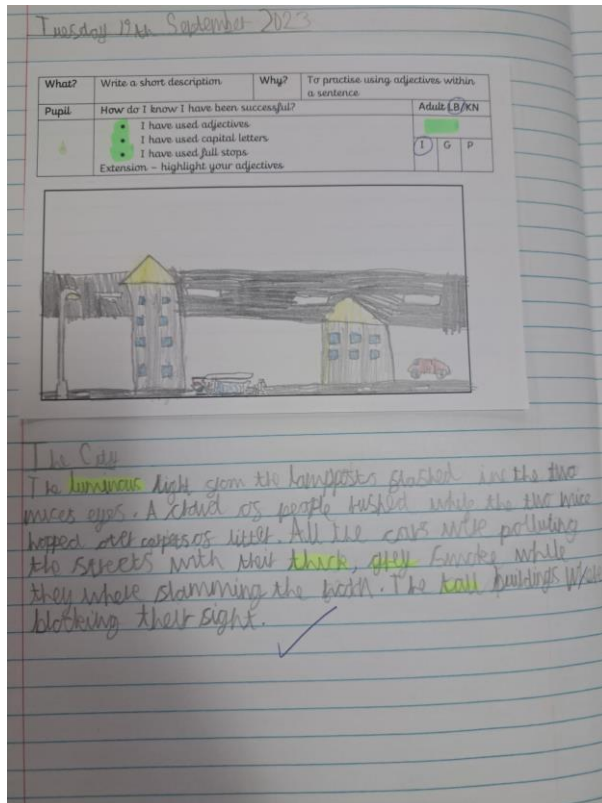 Tuesday 19th September 2023
What? Write a short description Why? To practise using adjectives within a sentence
Pupil How do I know I have been successful? Adult LB/KN
I have used adjectives
I have used capital letters
I have used full stops
I G P
Extension – highlight your adjectives
The City
The luminous light from the lampposts flashed in the two
mices eyes. A crowd of people rushed while the two mice
hopped over carpets of litter. All the cars were polluting
the streets with their thick, grey smoke while
they where slamming the horn. The tall buildings were
blocking their sight.